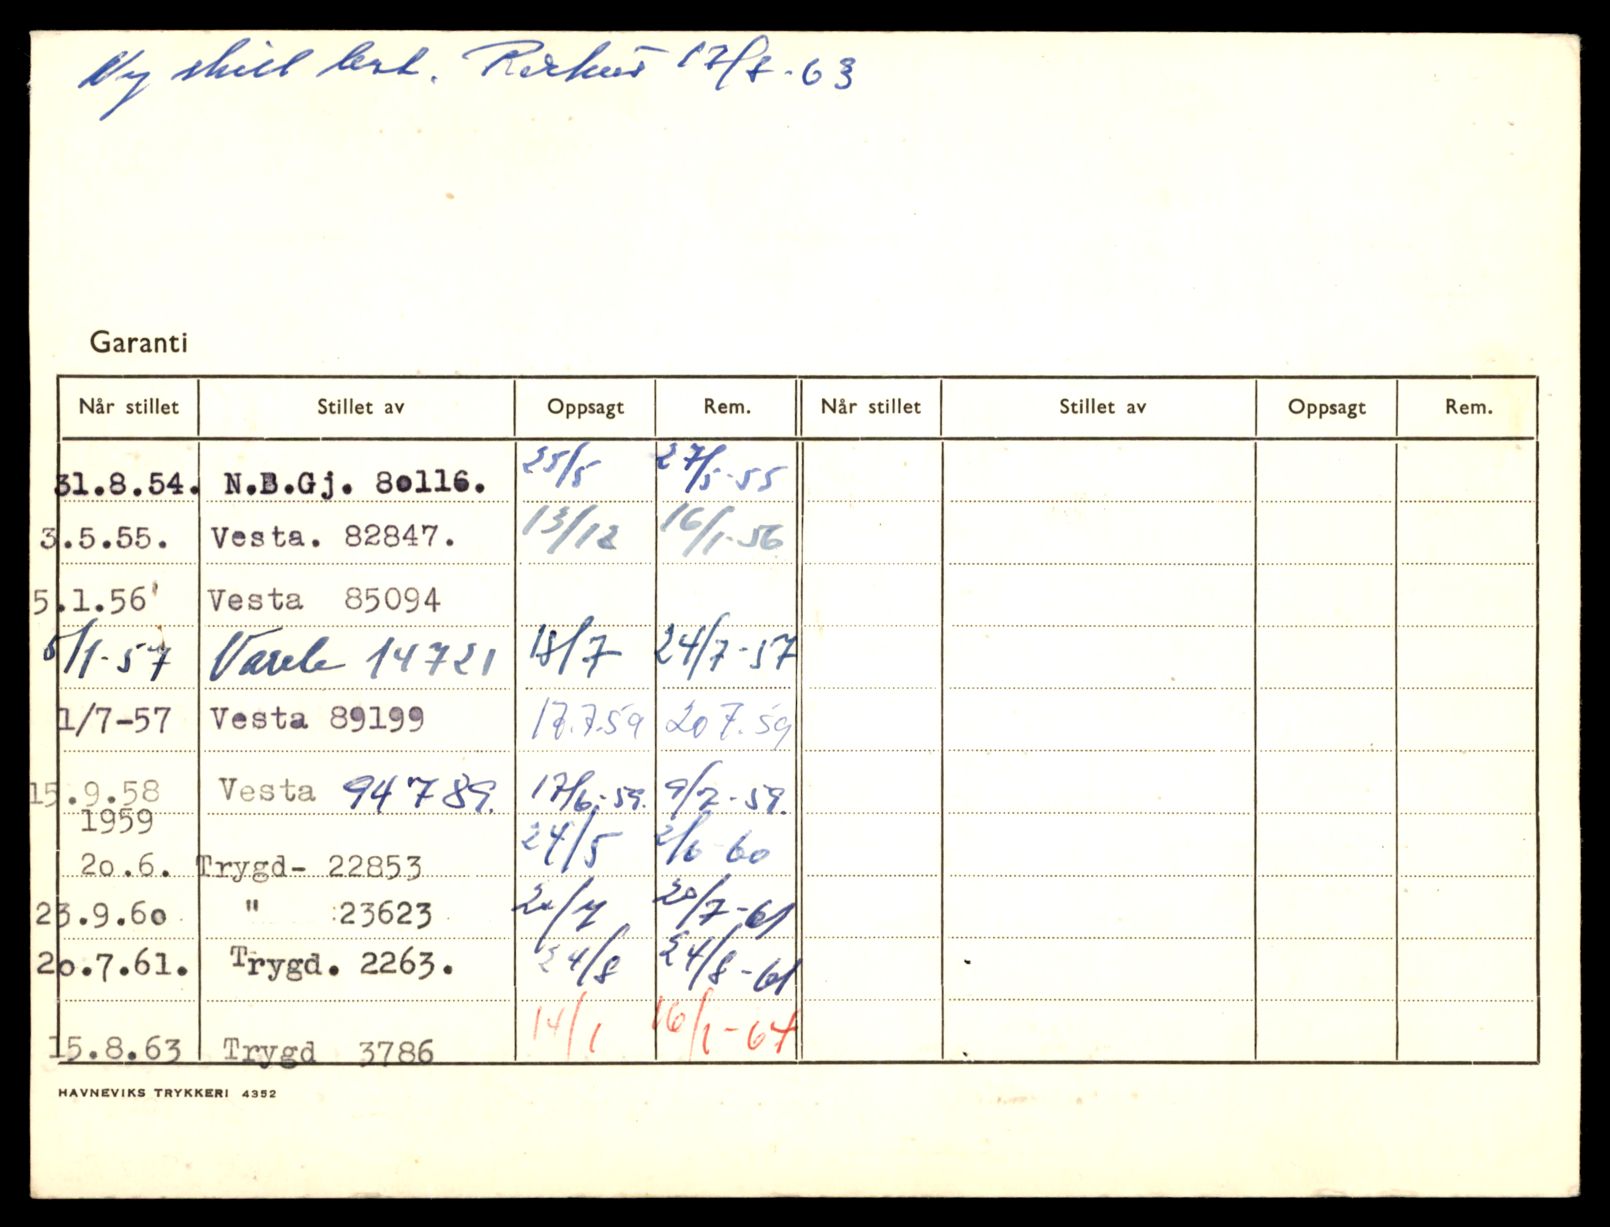 Ny skilt best. 17/8-63
Garanti
Når stillet Stillet av Oppsagt Rem. Når stillet Stillet av Oppsagt Rem.
31.8.54. N.B.Gj. 80116. 25/5 27/5-55
3.5.55. Vesta. 82847. 13/12 16/1-56
5.1.56' Vesta 85094
5/1-57 14721 18/7 24/7-57
1/7-57 Vesta 89199 17.7.59 20 7.59
15.9.58 Vesta 94789. 17/6-59. 9/7-59.
1959
20.6. Trygd- 22853 24/5 2/6 60
23.9.60 " 23623 20/7 20/7-61
20.7.61. Trygd. 2263. 24/8 24/8-61
15.8.63 Trygd 3786 14/1 16/1-64
HAVNEVIKS TRYKKERI 4352